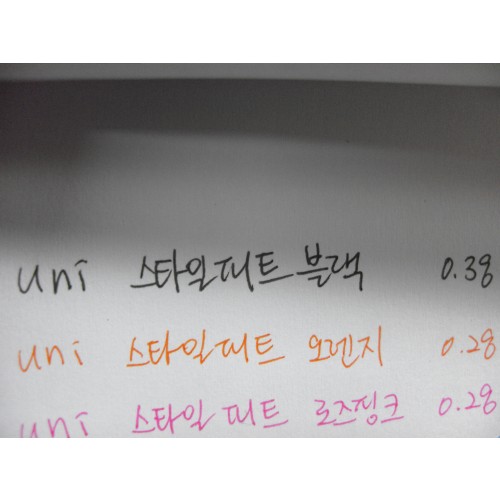 uni 스타일피트 블랙 0.38
uni 스타일피트 오렌지 0.28
uni 스타일피트 로즈핑크 0.28